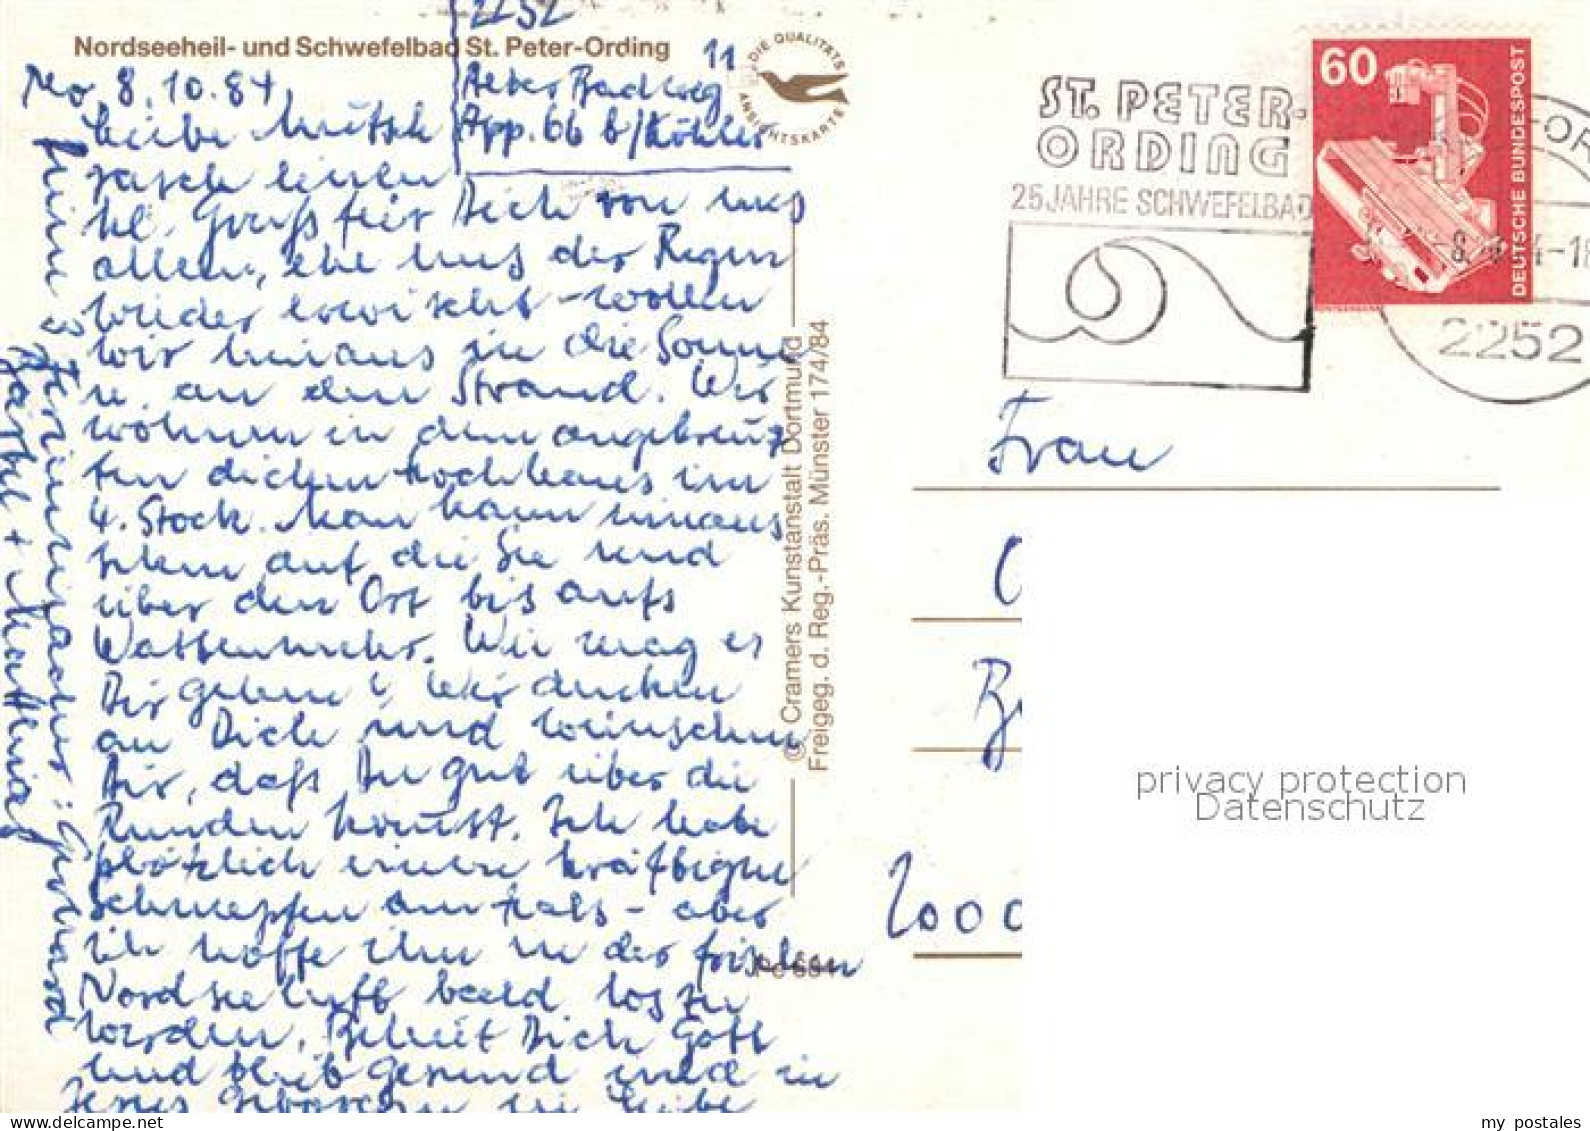 Nordseeheil- und Schwefelbad St. Peter-Ording
DIE QUALITÄTS
ANSICHTSKARTE
2252
11
Alter Badweg
App. 66 b/Köhler
Mo 8.10.84
Liebe
rasch einen
kl. Gruß für Dich von uns
allen, ehe uns der Regen
wieder erwischt - wollen
wir hinaus in die Sonne
u. an den Strand. Wir
wohnen in dem angekreuz-
ten dicken Hochhaus im
4. Stock. Man kann hinaus
sehen auf die See und
über den Ort bis aufs
Wattenmeer. Wie mag es
Dir gehen? Wir denken
an Dich und wünschen
Dir, daß Du gut über die
Runden kommst. Ich habe
plötzlich einen kräftigen
Schnupfen am Hals - aber
ich hoffe ihn in der frischen
Nordseeluft bald los zu
werden. Behüt Dich Gott
und bleib gesund und in
Jesus geborgen in Liebe
Deine
Ferienkinder: Gerhard
Bärbel + Matthias
© Cramers Kunstanstalt Dortmund
Freigeg. d. Reg.-Präs. Münster 174/84
ST. PETER-
ORDING
25 JAHRE SCHWEFELBAD
60
DEUTSCHE BUNDESPOST
2252
Frau
2000
privacy protection
Datenschutz
my postales